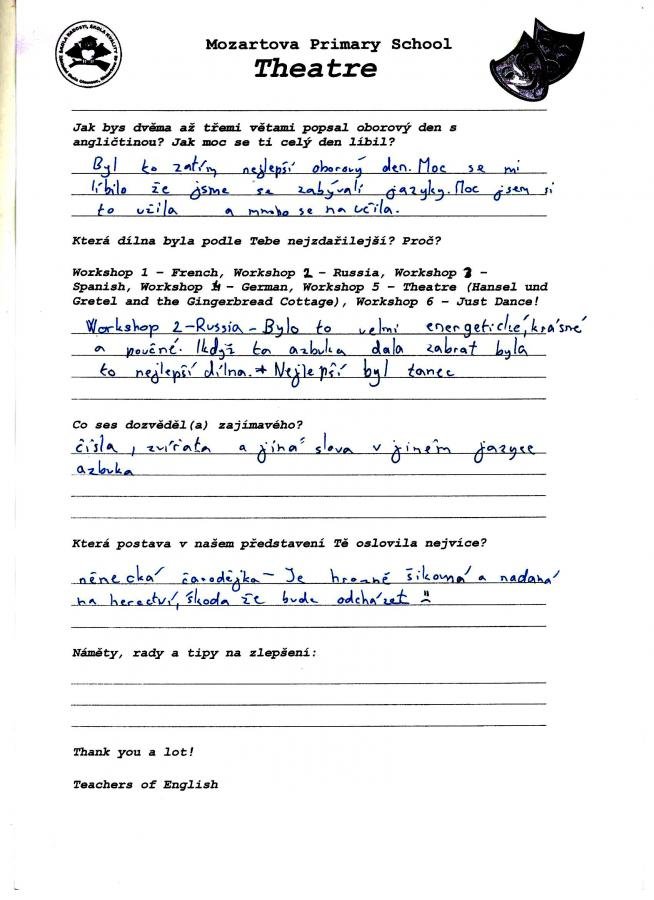 Mozartova Primary School
Theatre
Jak bys dvěma až třemi větami popsal oborový den s
angličtinou? Jak moc se ti celý den líbil?
Byl to zatím nejlepší oborový den. Moc se mi
líbilo že jsme se zabývali jazyky. Moc jsem si
to užila a mnoho se naučila.
Která dílna byla podle Tebe nejzdařilejší? Proč?
Workshop 1 – French, Workshop 2 – Russia, Workshop 3 –
Spanish, Workshop 4 – German, Workshop 5 – Theatre (Hansel und
Gretel and the Gingerbread Cottage), Workshop 6 – Just Dance!
Workshop 2-Russia - Bylo to velmi energetické, krásné
a poučné. Ikdyž ta azbuka dala zabrat byla
to nejlepší dílna. + Nejlepší byl tanec
Co ses dozvěděl(a) zajímavého?
čísla, zvířata a jiná slova v jiném jazyce
azbuka
Která postava v našem představení Tě oslovila nejvíce?
něnecká čarodějka - Je hrozně šikovná a nadaná
na herectví, škoda že bude odcházet
Náměty, rady a tipy na zlepšení:
Thank you a lot!
Teachers of English